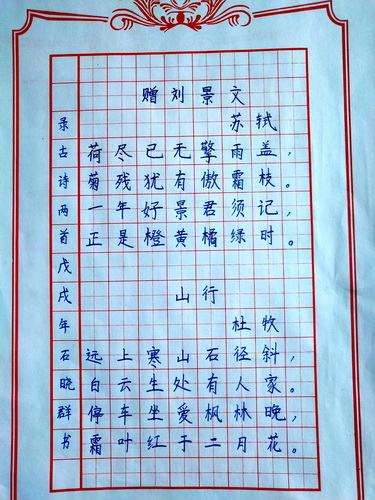 赠刘景文
苏轼
荷尽已无擎雨盖，
菊残犹有傲霜枝。
一年好景君须记，
正是橙黄橘绿时。
山行
杜牧
远上寒山石径斜，
白云生处有人家。
停车坐爱枫林晚，
霜叶红于二月花。
录古诗两首戊戌年石晓群书